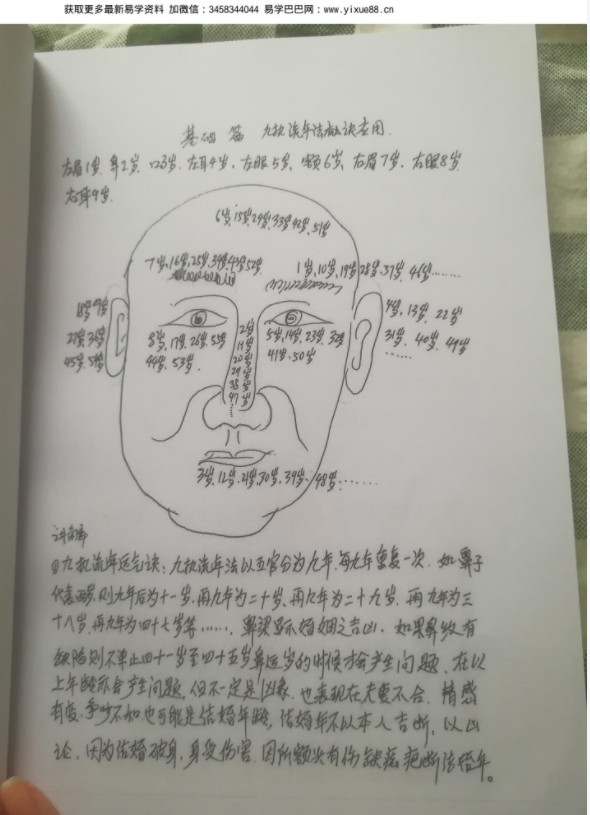 获取更多最新易学资料 加微信：3458344044 易学巴巴网：www.yixue88.cn
基础篇 九执流年法秘诀应用.
左眉1岁. 鼻2岁. 口3岁. 左耳4岁、左眼5岁、额6岁、右眉7岁、右眼8岁
右耳9岁.
6岁,15岁,24岁,33岁42岁,51岁
7岁,16岁,25岁,34岁,43岁52岁.
1岁,10岁,19岁28岁,37岁, 46岁........
18岁9岁
27岁,36岁
45岁,54岁
8岁,17岁,26岁,35岁
44岁、53岁.
2岁
11岁
20岁
29岁
38岁
47岁
5岁,14岁、23岁、32岁
41岁、50岁
4岁、13岁、22岁
31岁、40岁、49岁
......
3岁,12岁、21岁,30岁、39岁、48岁........
①九执流年运气诀：九执流年法以五官分为九年,每九年重复一次. 如鼻子
代表两岁,则九年后为十一岁,再九年为二十岁、再九年为二十九岁、再九年为三
十八岁,再九年为四十七岁等......、鼻梁显示婚姻之吉凶、如果鼻梁有
缺陷则不单止四十一岁至四十五岁鼻运岁的时候才会产生问题、在以
上年龄亦会产生问题,但不一定是凶象、也表现在夫妻不合、情感
有变、争吵不和也可能是结婚年龄、结婚年不以本人吉断、以凶
论、因为结婚破身、身受伤害、因所额头有伤缺痣疤断结婚年。